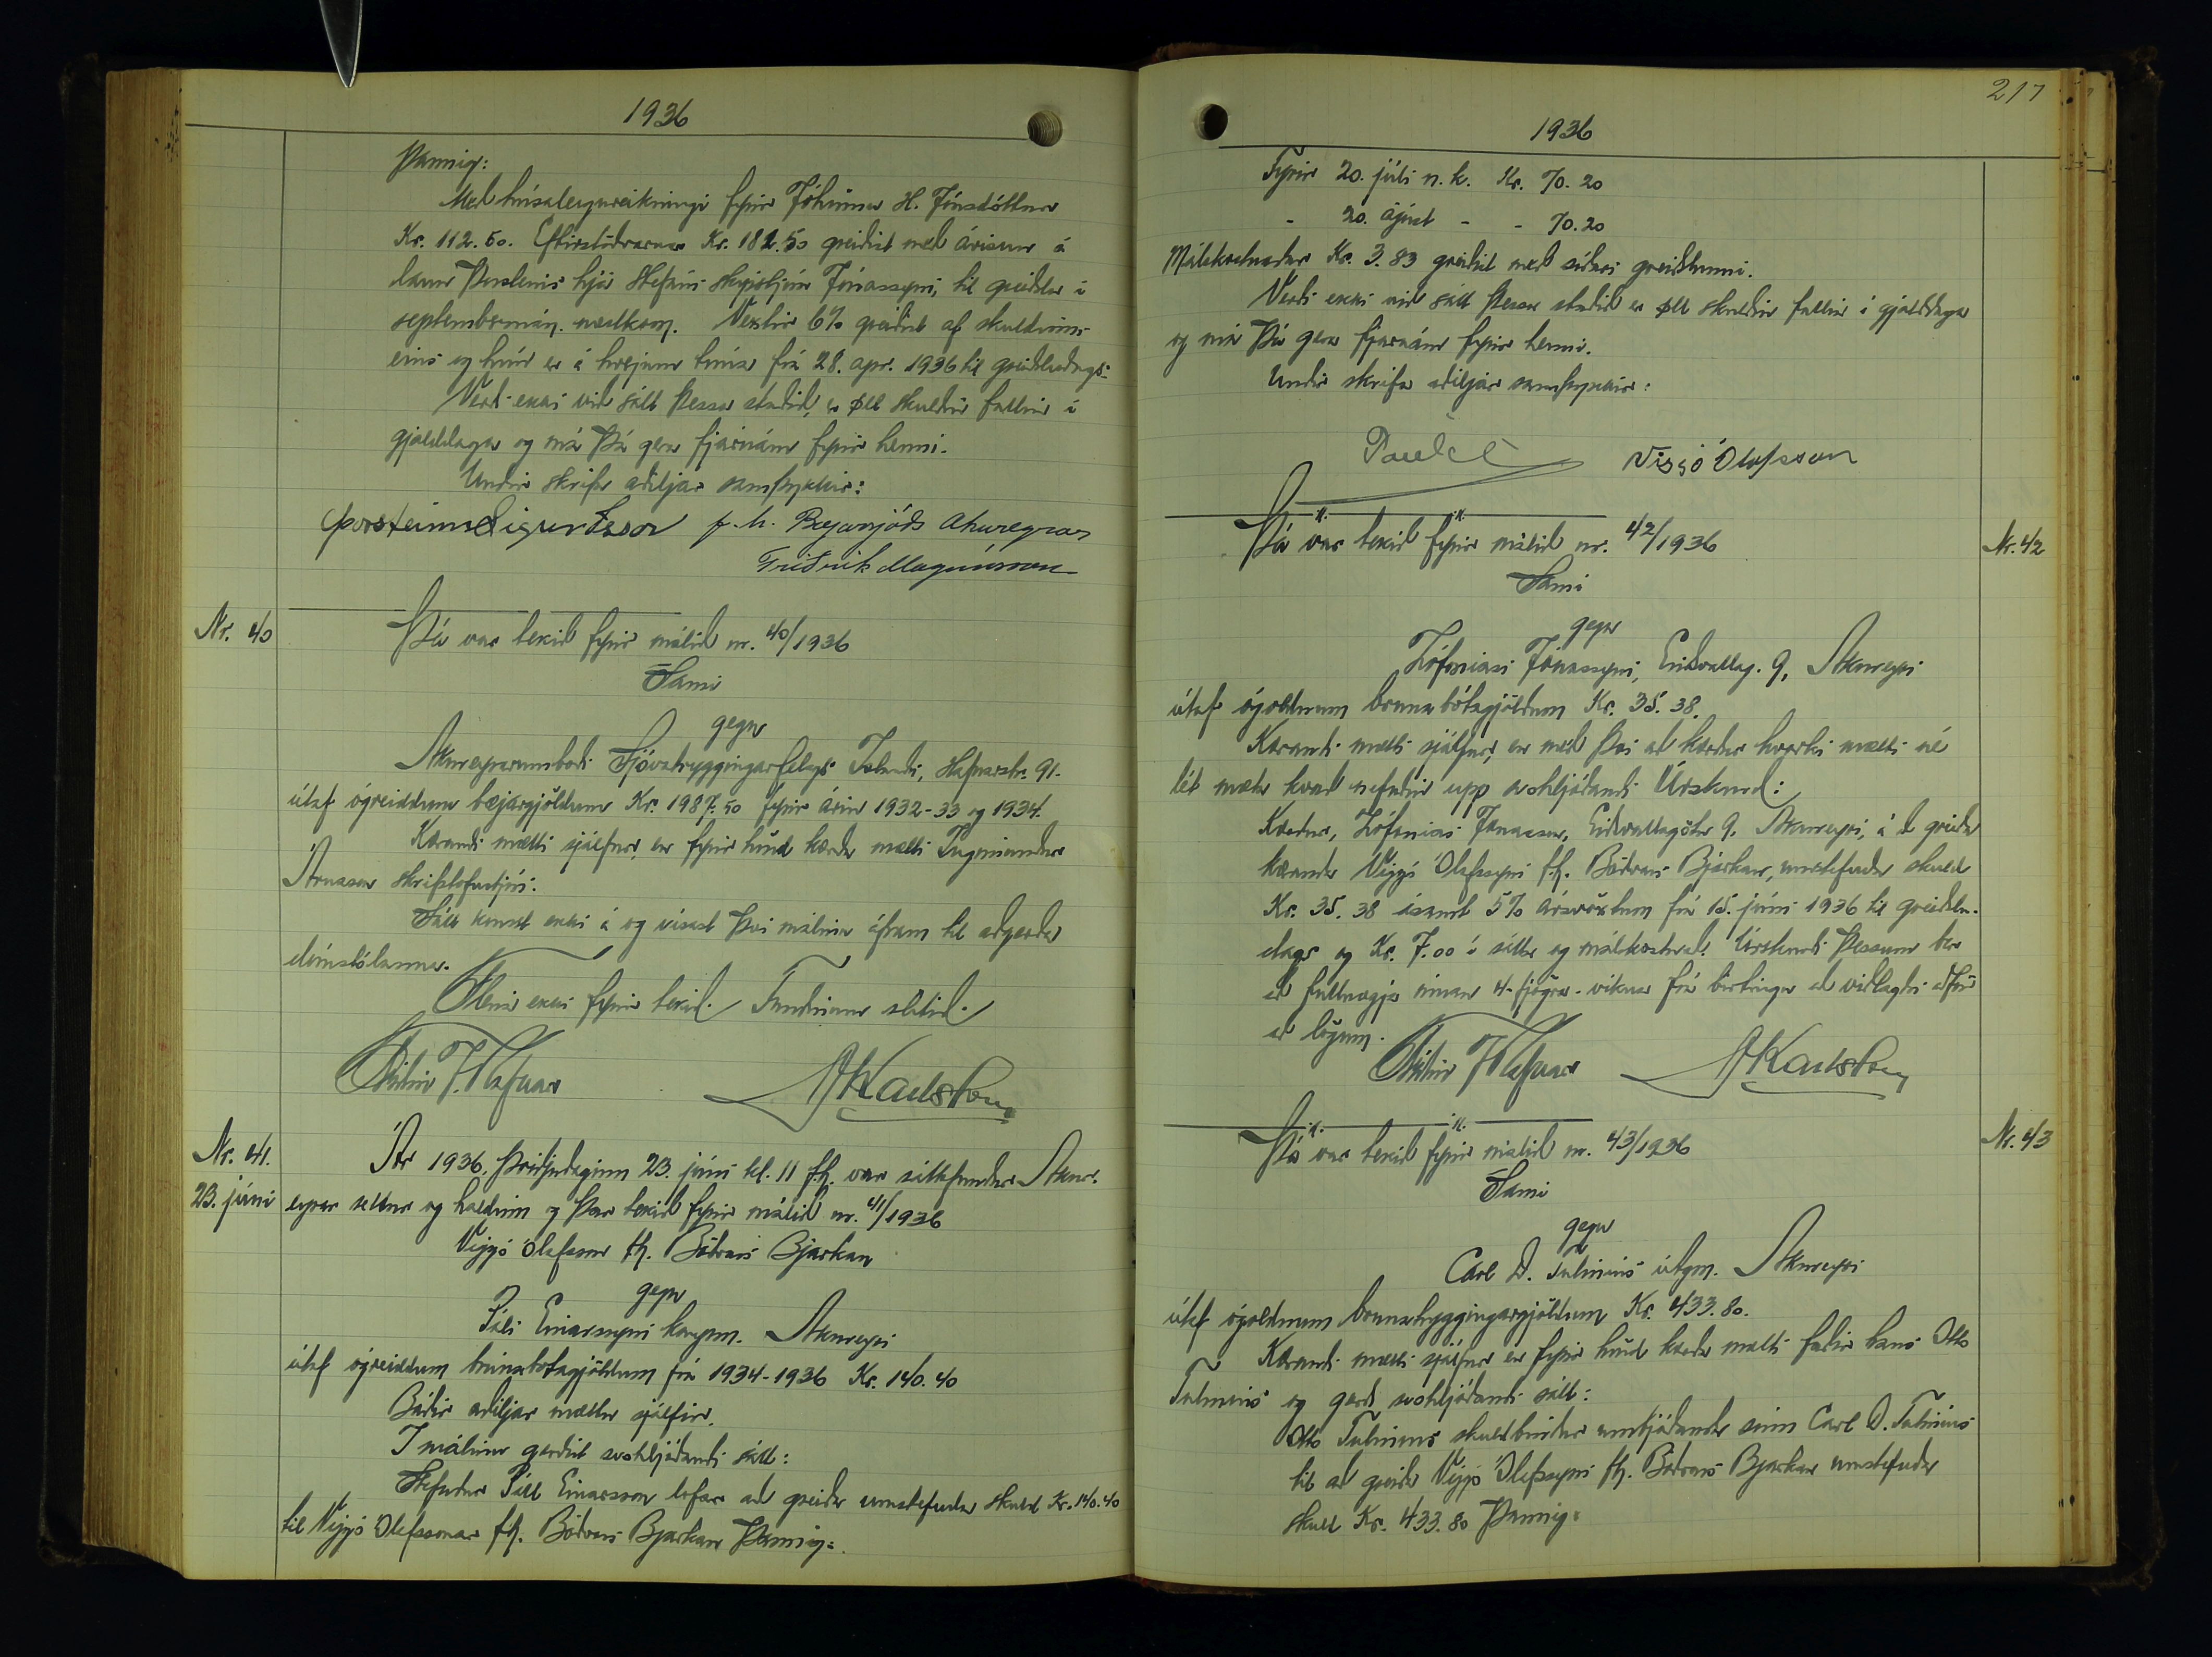 1936
Þannig:
Með húsaleigureikningi fyrir Jóhönnu H. Jónsdóttur
Kr. 112.50. Eftirstöðvarnar Kr. 182.50 greiðist með ávísun á
laun Þorsteins hjá Stefáni skipstjóra Jónassyni, til greiðslu í
septembermán. næstkom. Vextir 6% greiðist af skuldinni
eins og hún er á hverjum tíma frá 28. apr. 1936 til greiðsludags.
Verði ekki við sátt þessa staðið, er öll skuldin fallin í
gjalddaga og má þá gera fjárnám fyrir henni.
Undir skrifa aðiljar samþykkir:
Þorsteinn Sigurðsson f.h. Bæjarsjóðs Akureyrar
Friðrik Magnússon
Nr. 40
Þá var tekið fyrir málið nr. 40/1936
Sami
gegn
Akureyrarumboði Sjóvátryggingarfélags Íslands, Hafnarstr. 91.
útaf ógreiddum bæjargjöldum Kr. 1987.50 fyrir árin 1932-33 og 1934.
Kærandi mætti sjálfur, en fyrir hönd kærða mætti Ingimundur
Árnason skrifstofustjóri.
Sátt komst ekki á og vísast því málinu áfram til aðgerða
dómstólanna.
Fleira ekki fyrir tekið. Fundinum slitið.
Nr. 41.
23. júní
Ár 1936, þriðjudaginn 23. júní kl. 11 f.h. var sáttafundur Akur-
eyrar settur og haldinn og þar tekið fyrir málið nr. 41/1936
Viggó Ólafsson f.h. Böðvars Bjarkan
gegn
Páli Einarssyni kaupm. Akureyri
útaf ógreiddum brunabótagjöldum frá 1934-1936 Kr. 140.40
Báðir aðiljar mættu sjálfir.
Í málinu gerðist svohljóðandi sátt:
Stefndur Páll Einarsson lofar að greiða umstefnda skuld Kr. 140.40
til Viggó Ólafssonar f.h. Böðvars Bjarkan þannig:
217
1936
Fyrir 20. júlí n.k. Kr. 70.20
- 20. ágúst - - 70.20
Málskostnaður Kr. 3.83 greiðist með síðari greiðslunni.
Verði ekki við sátt þessa staðið er öll skuldin fallin í gjalddaga
og má þá gera fjárnám fyrir henni.
Undir skrifa aðiljar samþykkir:
Viggó Ólafsson
Nr. 42
Þá var tekið fyrir málið nr. 42/1936
Sami
gegn
Zófoníasi Jónassyni, Eiðsvallag. 9, Akureyri
útaf ógoldnum brunabótagjöldum Kr. 35.38.
Kærandi mætti sjálfur, en með því að kærður hvorki mætti né
lét mæta kvað nefndin upp svohljóðandi Úrskurð:
Kærður, Zófonías Jónasson, Eiðsvallagötu 9, Akureyri, á að greiða
kæranda Viggó Ólafssyni f.h. Böðvars Bjarkan, umstefnda skuld
Kr. 35.38 ásamt 5% ársvöxtum frá 15. júní 1936 til greiðslu-
dags og Kr. 7.00 í sátta og málskostnað. Úrskurði þessum ber
að fullnægja innan 4-fjögra-vikna frá birtingu að viðlagðri aðför
að lögum.
Nr. 43
Þá var tekið fyrir málið nr. 43/1936
Sami
gegn
Carl D. Tulinius útgm. Akureyri
útaf ógoldnum brunatryggingargjöldum Kr. 433.80.
Kærandi mætti sjálfur en fyrir hönd kærða mætti faðir hans Otto
Tulinius og gerð svohljóðandi sátt:
Otto Tulinius skuldbindur umbjóðanda sinn Carl D. Tulinius
til að greiða Viggó Ólafssyni f.h. Böðvars Bjarkan umstefnda
skuld Kr. 433.80 þannig: